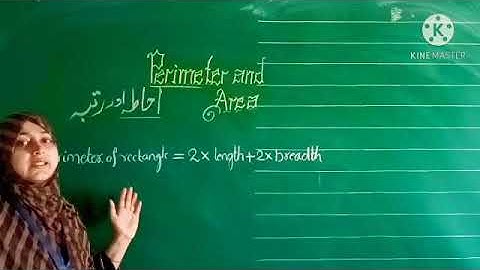 Perimeter and
Area
احاطہ اور رقبہ
imeter of rectangle = 2 x length + 2 x breadth
KINEMASTER